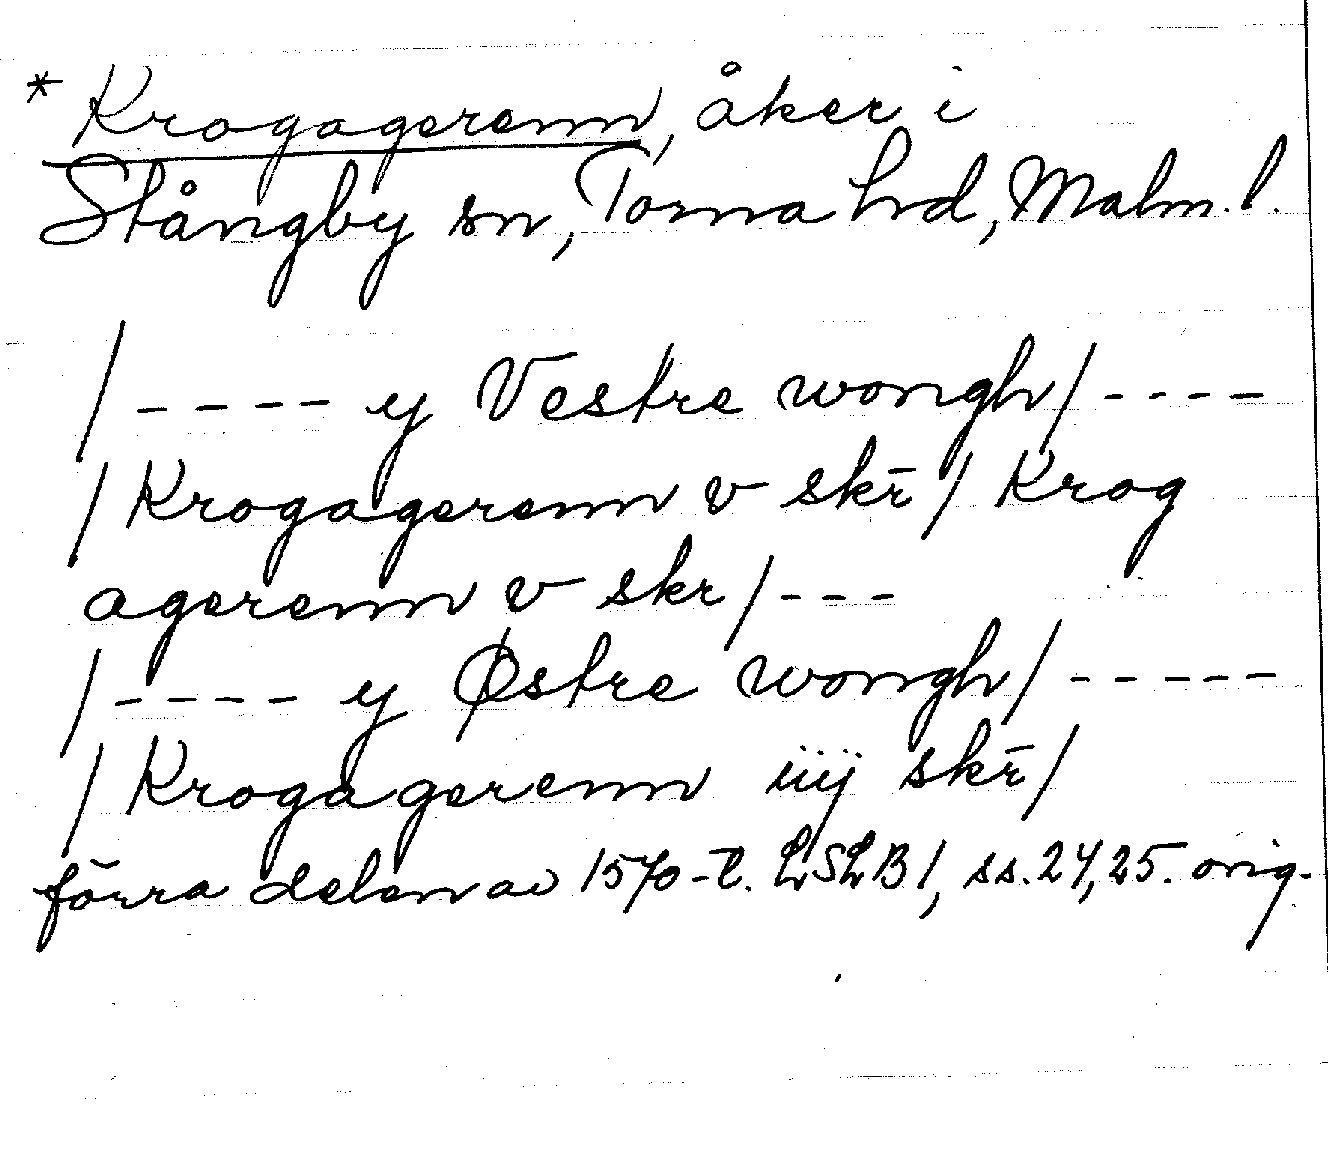 * Krogagerenn, åker i
Stångby sn, Torna hd, Malm. l.
/ ---- y Vestre wongh / ----
/ Krogagerenn v skr̄ / Krog
agerenn v skr / ---
/ ---- y Østre wongh / -----
/ Krogagerenn iiij skr̄ /
förra delen av 1570-t. LSLB 1, ss. 24, 25. orig.